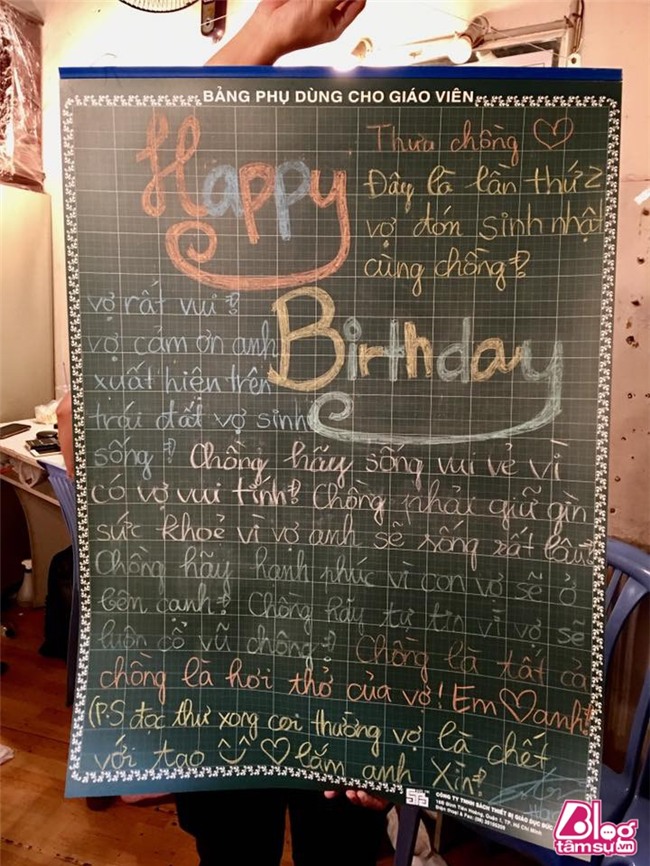 BẢNG PHỤ DÙNG CHO GIÁO VIÊN
Happy
Thưa chồng ♡
Đây là lần thứ 2
vợ đón sinh nhật
cùng chồng!
Birthday
vợ rất vui!
vợ cảm ơn anh
xuất hiện trên
trái đất vợ sinh
sống! Chồng hãy sống vui vẻ vì
có vợ vui tính! Chồng phải giữ gìn
sức khoẻ vì vợ anh sẽ sống rất lâu!
Chồng hãy hạnh phúc vì con vợ sẽ ở
bên cạnh! Chồng hãy tự tin vì vợ sẽ
luôn cổ vũ chồng! Chồng là tất cả
chồng là hơi thở của vợ! Em ♡ anh!
(P.S đọc thư xong coi thường vợ là chết
với tao ♡ lắm anh Xìn!
CÔNG TY TNHH SÁCH THIẾT BỊ GIÁO DỤC ĐỨC
Blog
tâmsự.vn